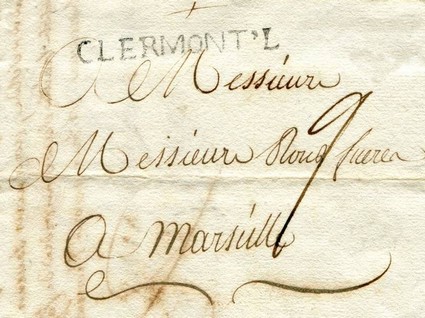 CLERMONT'L
A Messieurs
Messieurs Roux freres
9
A Marseille